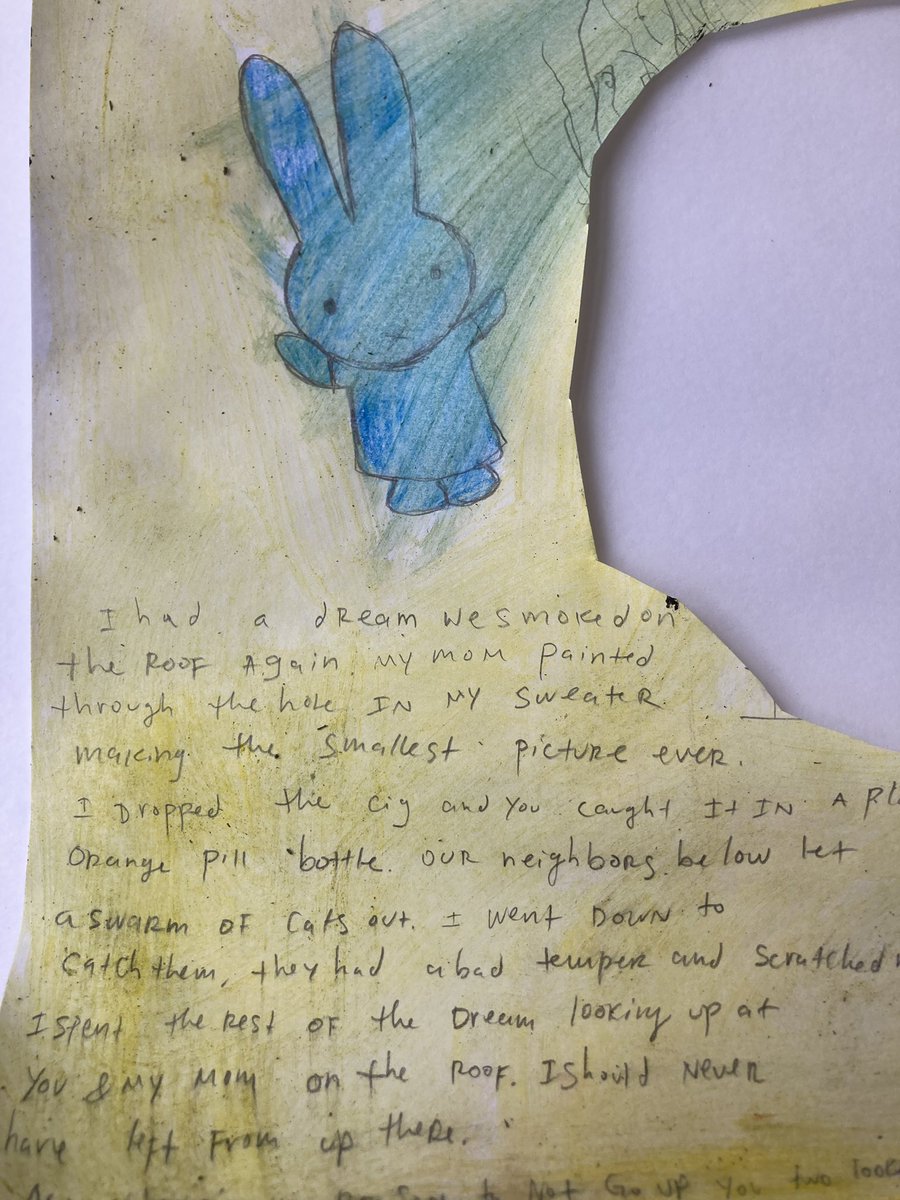 I had a dream we smoked on
the Roof Again my mom painted
through the hole IN my sweater
making the smallest picture ever.
I Dropped the cig and you caught It IN A
Orange pill bottle. our neighbors below let
a swarm of cats out. I went down to
catch them, they had a bad temper and scratched
I spent the rest of the Dream looking up at
you & my mom on the Roof. I should Never
have left from up there.
to Not Go up you two